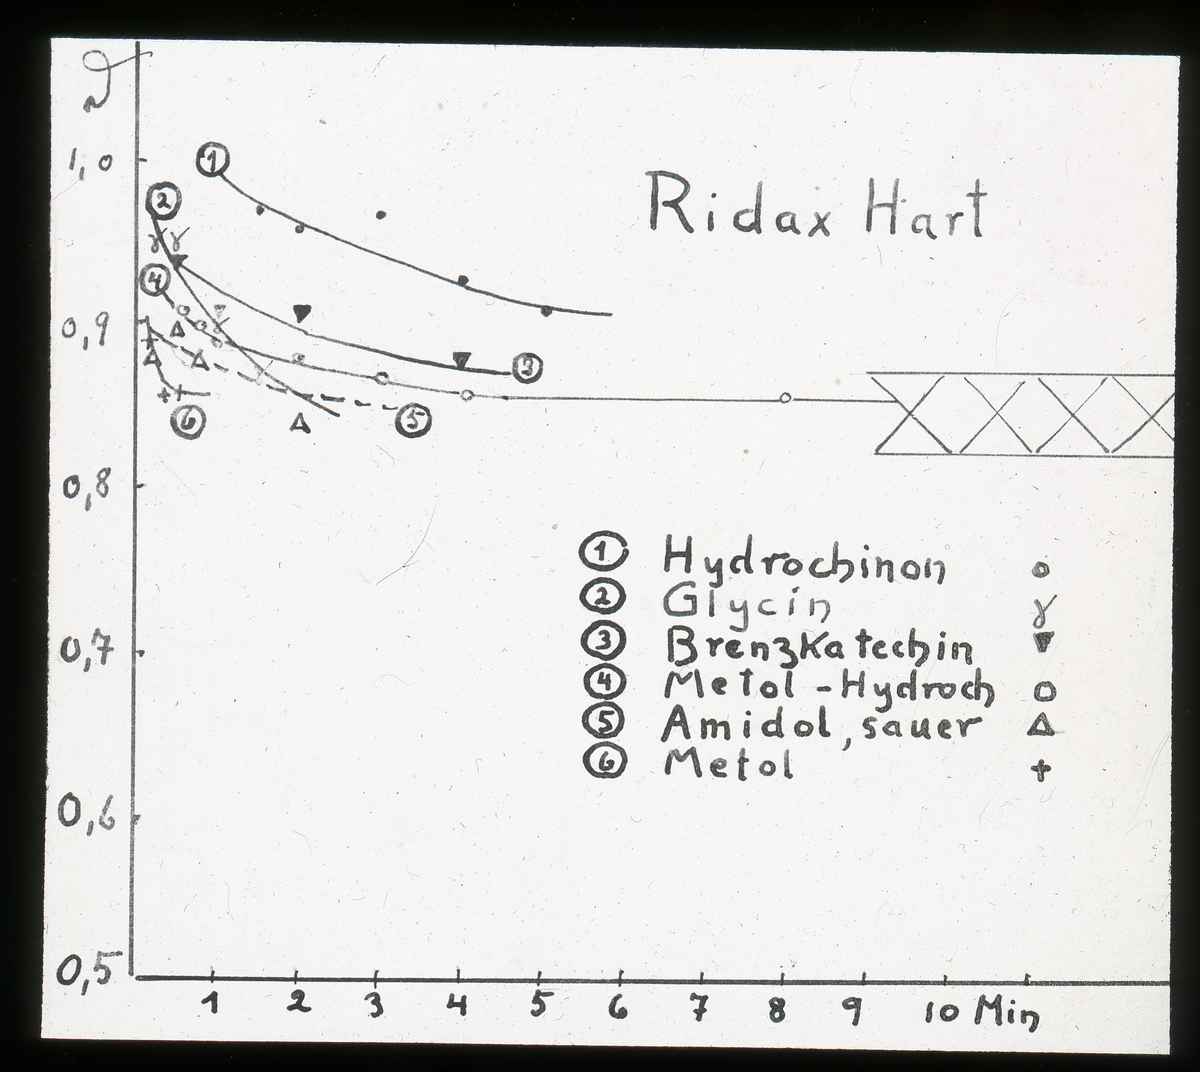 Ridax Hart
1,0
0,9
0,8
0,7
0,6
0,5
① 
②
④
③
⑥
⑤
① Hydrochinon
② Glycin γ
③ Brenzkatechin
④ Metol-Hydroch
⑤ Amidol, sauer
⑥ Metol
1 2 3 4 5 6 7 8 9 10 Min